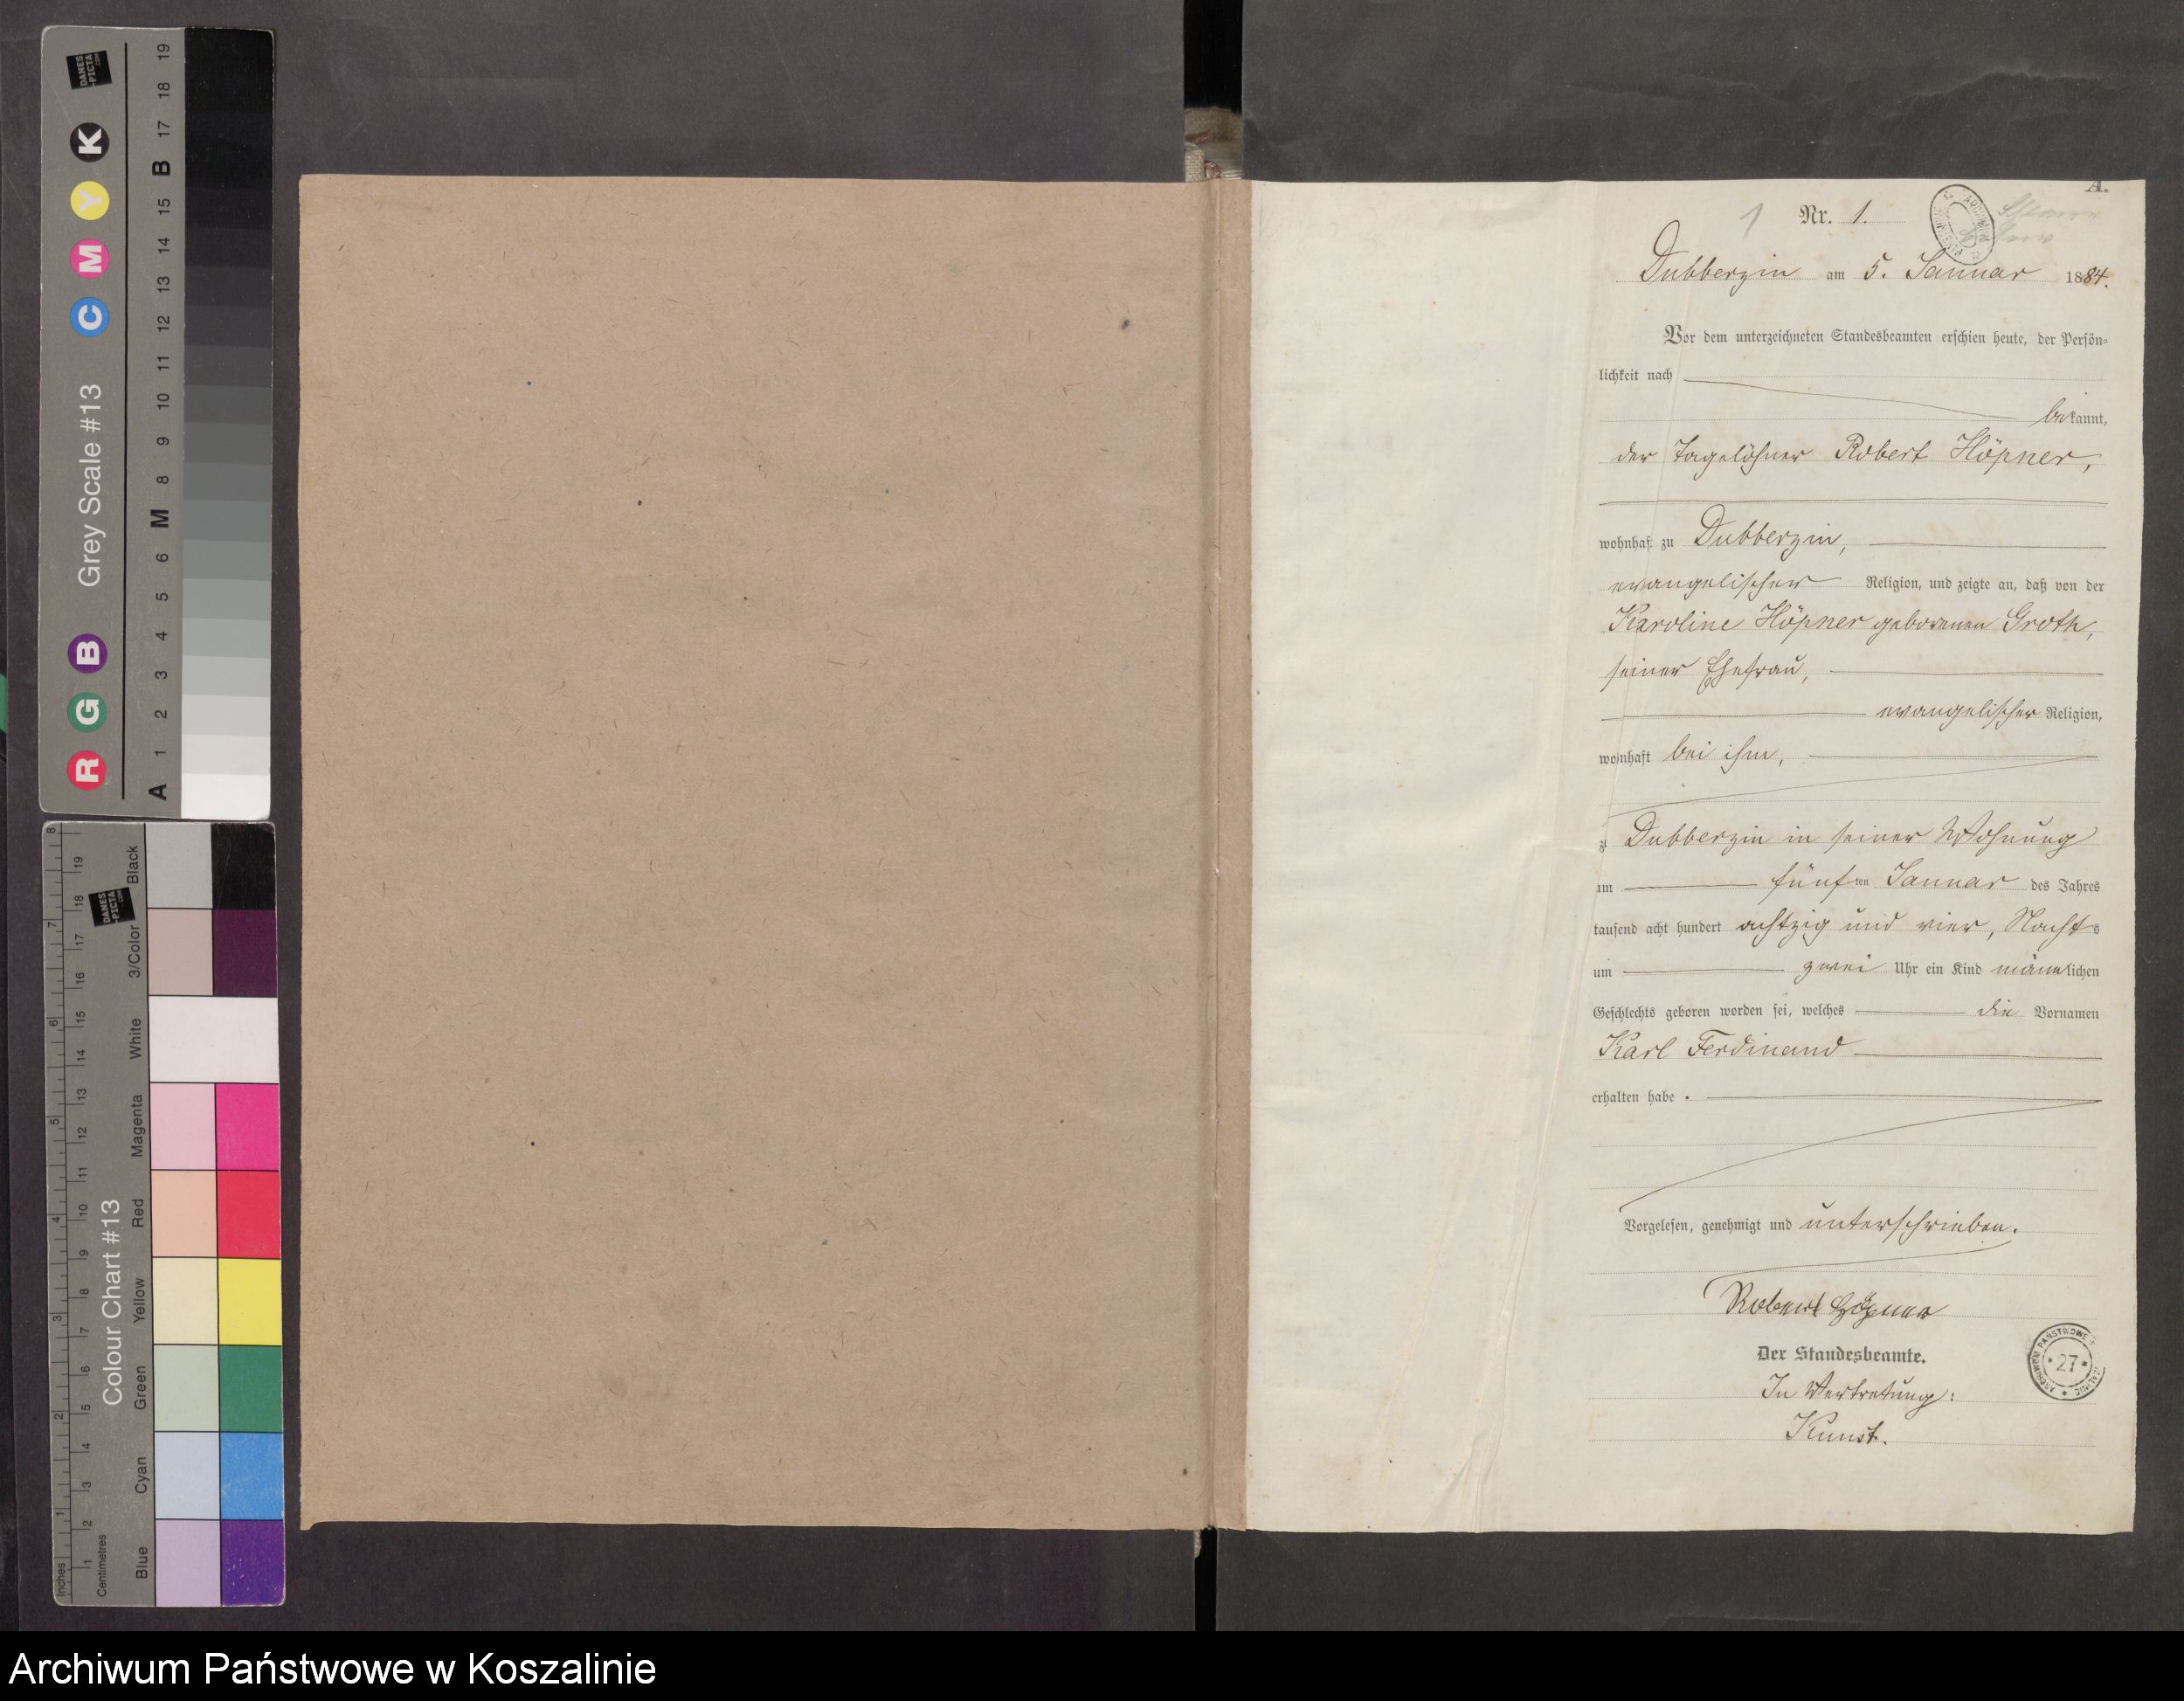 A.
1 Nr. 1.
Dubberzin am 5. Januar 1884.
Vor dem unterzeichneten Standesbeamten erschien heute, der Persön-
lichkeit nach
bekannt,
der Tagelöhner Robert Höpner,
wohnhaft zu Dubberzin,
evangelischer Religion, und zeigte an, daß von der
Karoline Höpner geborenen Groth,
seiner Ehefrau,
evangelischer Religion,
wohnhaft bei ihm,
zu Dubberzin in seiner Wohnung
am fünften Januar des Jahres
tausend acht hundert achtzig und vier, Nachts
um zwei Uhr ein Kind männlichen
Geschlechts geboren worden sei, welches die Vornamen
Karl Ferdinand
erhalten habe.
Vorgelesen, genehmigt und unterschrieben.
Robert Höpner
Der Standesbeamte.
In Vertretung:
Kunst.
ARCHIWUM PAŃSTWOWE
* 27 *
Grey Scale #13
R G B C M Y K
A 1 2 3 4 5 6 M 8 9 10 11 12 13 14 15 B 17 18 19
DANES
-PICTA
.COM
Colour Chart #13
Blue Cyan Green Yellow Red Magenta White 3/Color Black
Inches 1 2 3 4 5 6 7 8
Centimetres 1 2 3 4 5 6 7 8 9 10 11 12 13 14 15 16 17 18 19
DANES
-PICTA
.COM
Archiwum Państwowe w Koszalinie